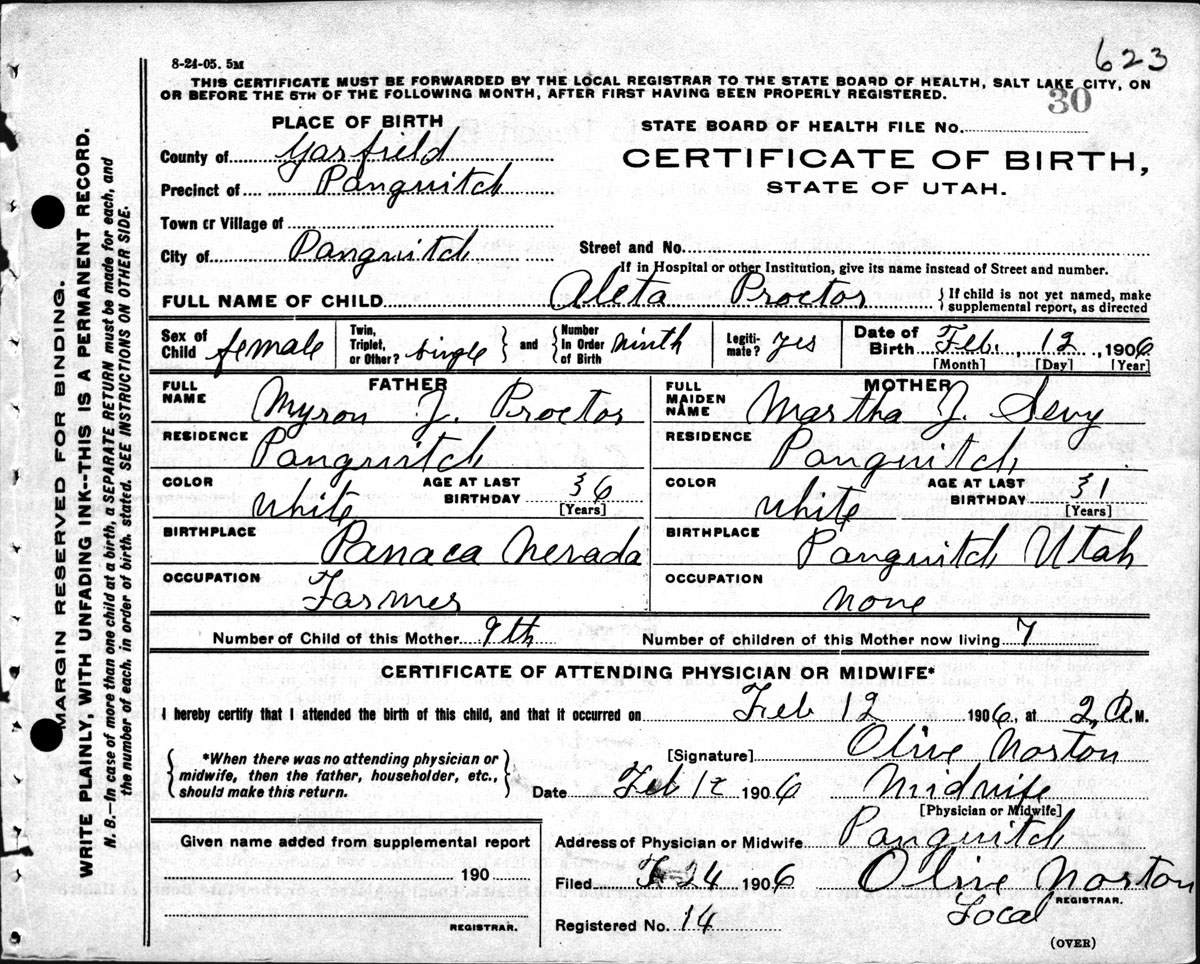 623
8-24-05. 5M
THIS CERTIFICATE MUST BE FORWARDED BY THE LOCAL REGISTRAR TO THE STATE BOARD OF HEALTH, SALT LAKE CITY, ON
OR BEFORE THE 5TH OF THE FOLLOWING MONTH, AFTER FIRST HAVING BEEN PROPERLY REGISTERED.
30
PLACE OF BIRTH
STATE BOARD OF HEALTH FILE No.
County of Garfield
CERTIFICATE OF BIRTH,
Precinct of Panguitch
STATE OF UTAH.
Town or Village of
City of Panguitch
Street and No.
If in Hospital or other Institution, give its name instead of Street and number.
FULL NAME OF CHILD Aleta Proctor
{ If child is not yet named, make
supplemental report, as directed
Sex of Child female
Twin, Triplet, or Other? single } and { Number In Order of Birth ninth
Legiti-mate? yes
Date of Birth Feb. 12, 1906
[Month] [Day] [Year]
FATHER
FULL NAME Myron J. Proctor
MOTHER
FULL MAIDEN NAME Martha J. Sevy
RESIDENCE Panguitch
RESIDENCE Panguitch
COLOR white
AGE AT LAST BIRTHDAY 36
[Years]
COLOR white
AGE AT LAST BIRTHDAY 31
[Years]
BIRTHPLACE Panaca Nevada
BIRTHPLACE Panguitch Utah
OCCUPATION Farmer
OCCUPATION none
Number of Child of this Mother 9th
Number of children of this Mother now living 7
CERTIFICATE OF ATTENDING PHYSICIAN OR MIDWIFE*
I hereby certify that I attended the birth of this child, and that it occurred on Feb 12 1906, at 2, A.M.
{ *When there was no attending physician or
midwife, then the father, householder, etc.,
should make this return. }
[Signature] Olive Norton
Date Feb 12 1906
Midwife
[Physician or Midwife]
Address of Physician or Midwife Panguitch
Given name added from supplemental report
190
REGISTRAR.
Filed F 24 1906
Olive Norton
REGISTRAR.
Local
Registered No. 14
(OVER)
MARGIN RESERVED FOR BINDING.
WRITE PLAINLY, WITH UNFADING INK--THIS IS A PERMANENT RECORD.
N. B.—In case of more than one child at a birth, a SEPARATE RETURN must be made for each, and
the number of each, in order of birth, stated. SEE INSTRUCTIONS ON OTHER SIDE.